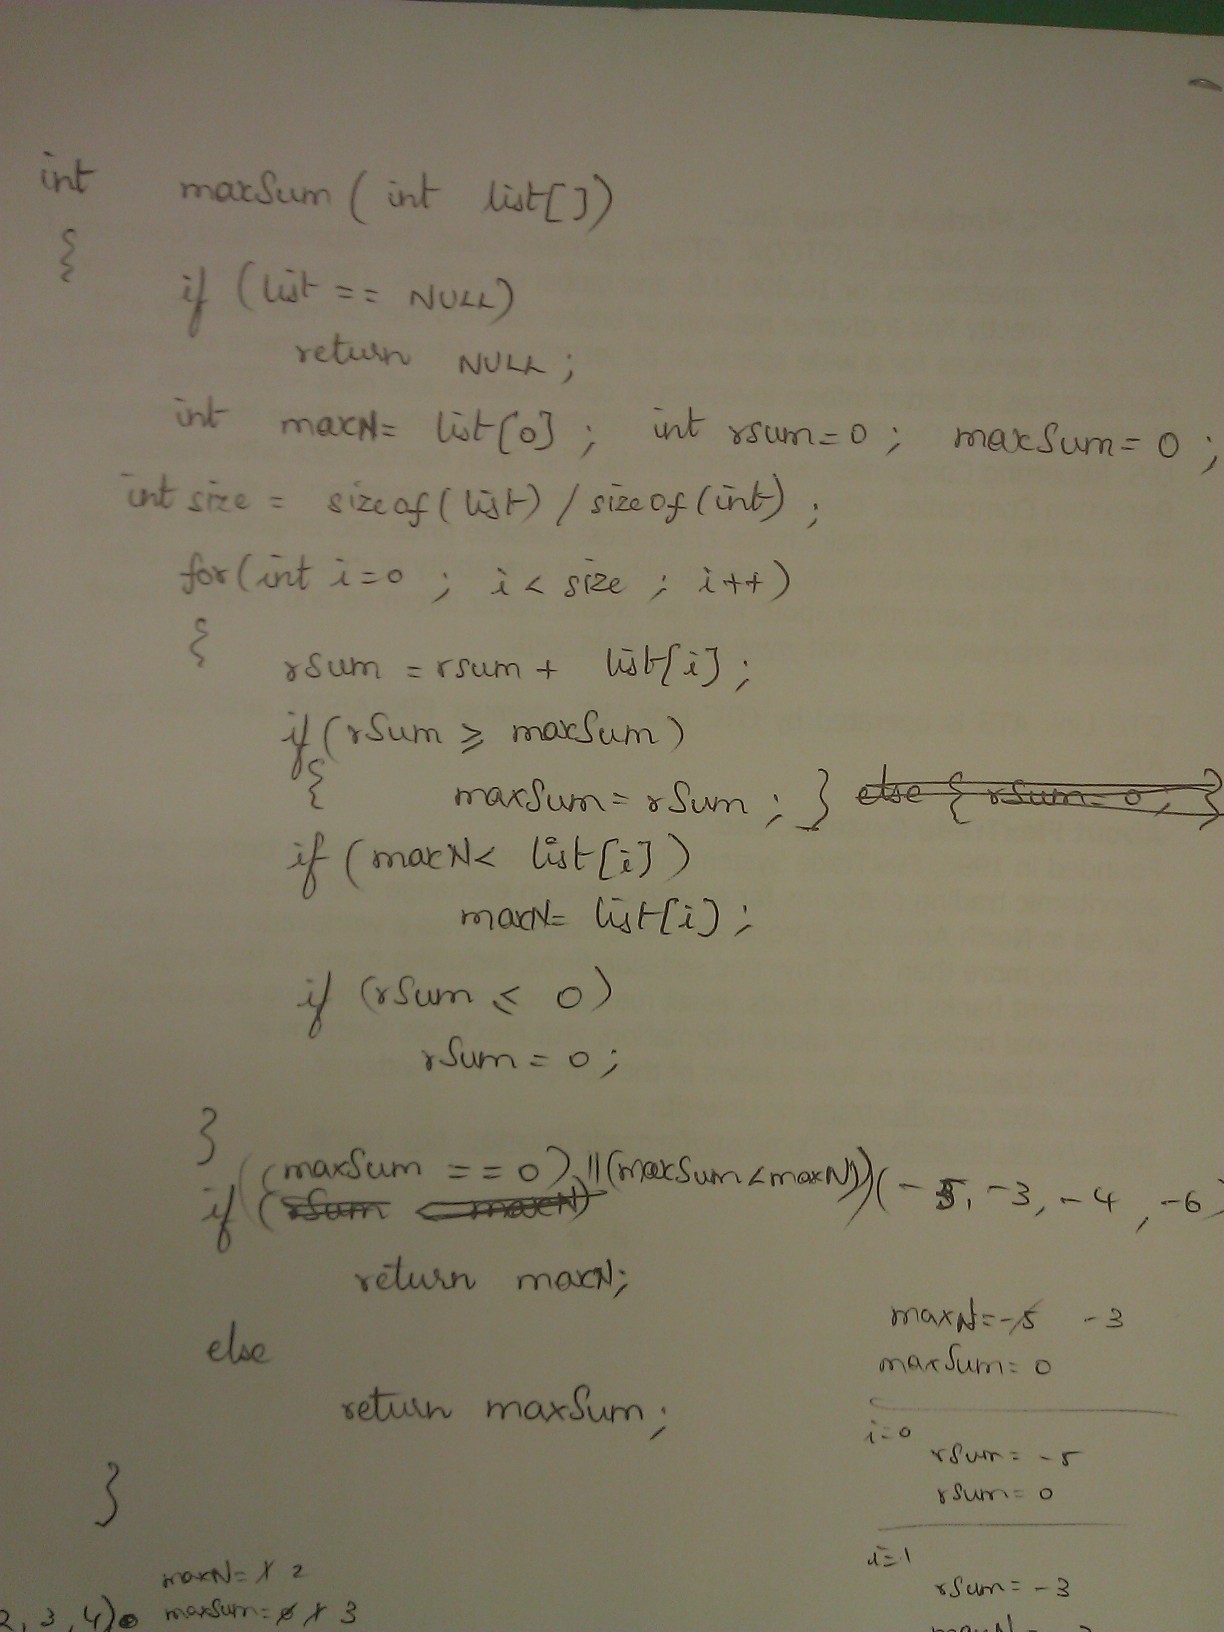 int maxSum ( int list[])
{
if (list == NULL)
return NULL ;
int maxN= list[0] ; int rsum=0 ; maxSum=0 ;
int size = sizeof(list) / sizeof(int) ;
for(int i=0 ; i < size ; i++)
{
rSum = rsum + list[i] ;
if (rSum ≥ maxSum)
{ maxSum = rSum ; } else { rSum=0 ; }
if (maxN< list[i])
maxN= list[i] ;
if (rSum ≤ 0)
rSum = 0 ;
}
((maxSum == 0) || (maxSum<maxN))
if (rSum < maxN) (-5, -3, -4, -6)
return maxN;
else
return maxSum ;
}
maxN=-5 -3
maxSum= 0
i=0
rSum= -5
rSum= 0
i=1
rSum= -3
maxN= 1 2
2, 3, 4) maxSum= 0 1 3